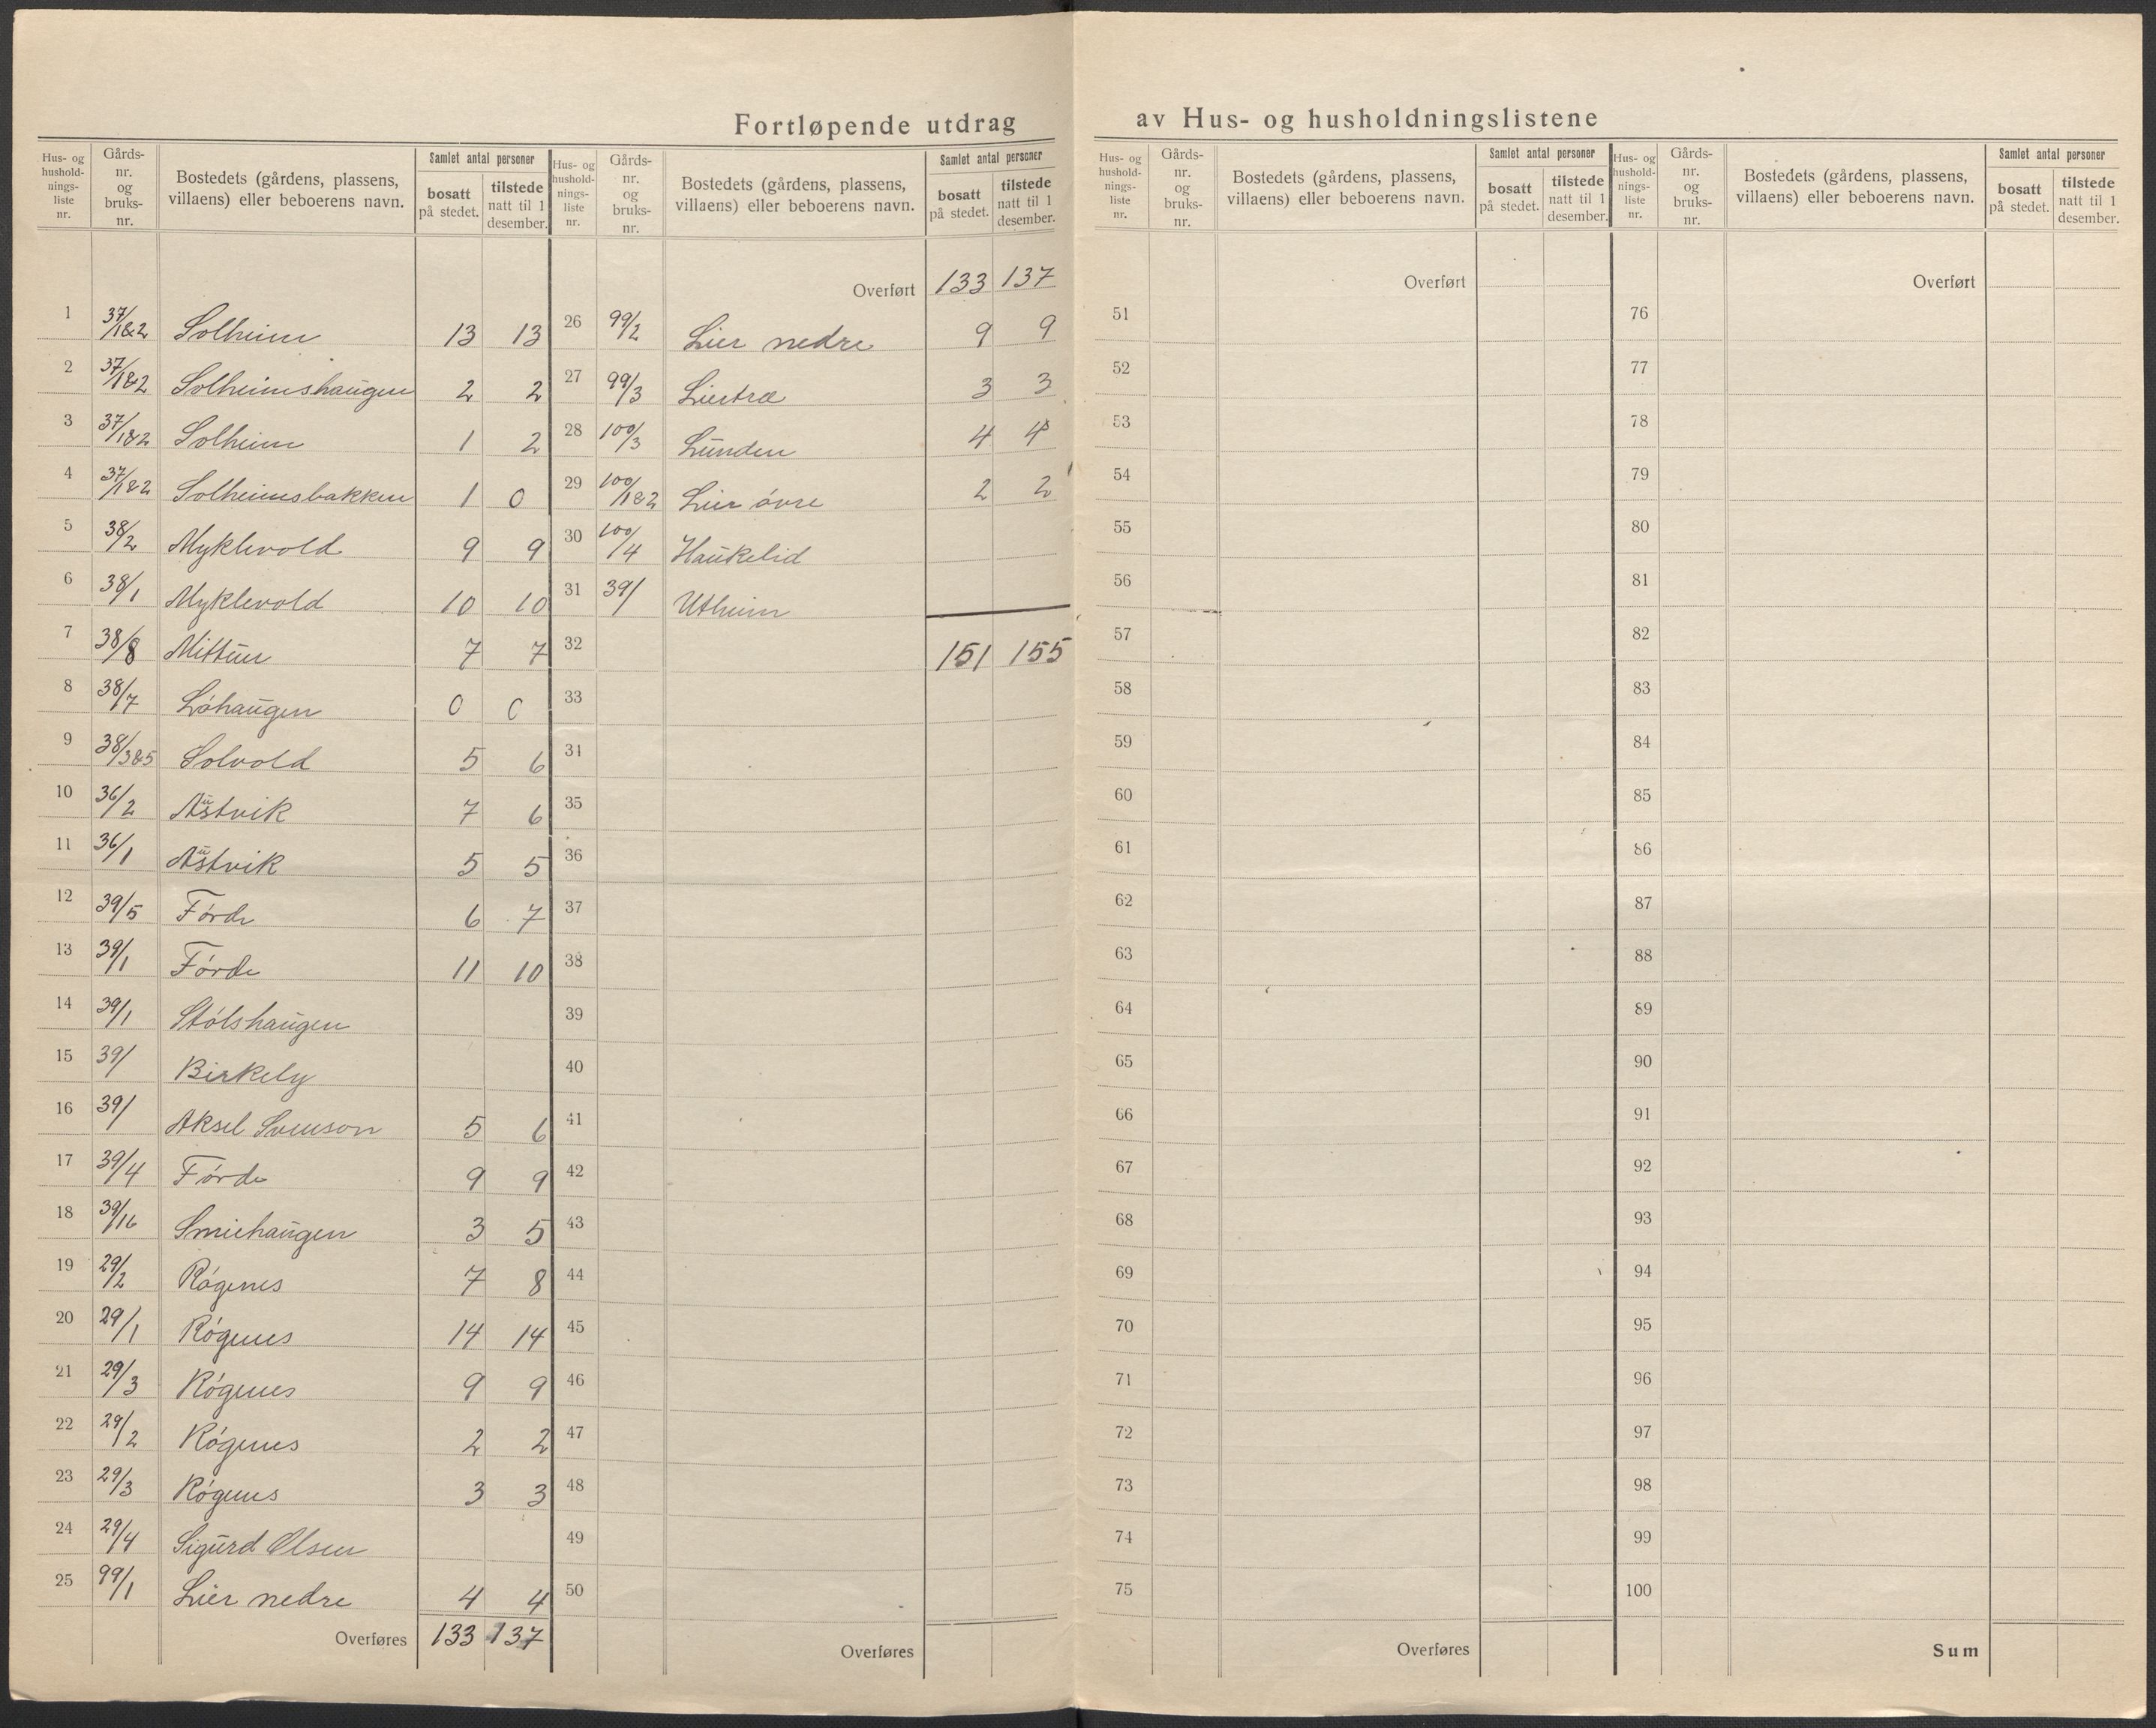 Fortløpende utdrag av Hus- og husholdningslistene
Hus- og hushold-nings-liste nr. Gårds-nr. og bruks-nr. Bostedets (gårdens, plassens, villaens) eller beboerens navn. Samlet antal personer bosatt på stedet. tilstede natt til 1 desember.
1 37/1&2 Solheim 13 13
2 37/1&2 Solheimshaugen 2 2
3 37/1&2 Solheim 1 2
4 37/1&2 Solheimsbakken 1 0
5 38/2 Myklevold 9 9
6 38/1 Myklevold 10 10
7 38/8 Mittun 7 7
8 38/7 Löhaugen 0 0
9 38/3&5 Solvold 5 6
10 36/2 Austvik 7 6
11 36/1 Austvik 5 5
12 39/5 Förde 6 7
13 39/1 Förde 11 10
14 39/1 Stölshaugen
15 39/ Birkely
16 39/ Aksel Svenson 5 6
17 39/4 Förde 9 9
18 39/16 Smiehaugen 3 5
19 29/2 Rögenes 7 8
20 29/1 Rögenes 14 14
21 29/3 Rögenes 9 9
22 29/2 Rögenes 2 2
23 29/3 Rögenes 3 3
24 29/4 Sigurd Olsen
25 99/1 Lier nedre 4 4
Overføres 133 137
Hus- og hushold-nings-liste nr. Gårds-nr. og bruks-nr. Bostedets (gårdens, plassens, villaens) eller beboerens navn. Samlet antal personer bosatt på stedet. tilstede natt til 1 desember.
Overført 133 137
26 99/2 Lier nedre 9 9
27 99/3 Liertræ 3 3
28 100/3 Lunden 4 4
29 100/1&2 Lier övre 2 2
30 100/4 Haukelid
31 39/ Utheim
32 151 155
33
34
35
36
37
38
39
40
41
42
43
44
45
46
47
48
49
50
Overføres
Hus- og hushold-nings-liste nr. Gårds-nr. og bruks-nr. Bostedets (gårdens, plassens, villaens) eller beboerens navn. Samlet antal personer bosatt på stedet. tilstede natt til 1 desember.
Overført
51
52
53
54
55
56
57
58
59
60
61
62
63
64
65
66
67
68
69
70
71
72
73
74
75
Overføres
Hus- og hushold-nings-liste nr. Gårds-nr. og bruks-nr. Bostedets (gårdens, plassens, villaens) eller beboerens navn. Samlet antal personer bosatt på stedet. tilstede natt til 1 desember.
Overført
76
77
78
79
80
81
82
83
84
85
86
87
88
89
90
91
92
93
94
95
96
97
98
99
100
Sum